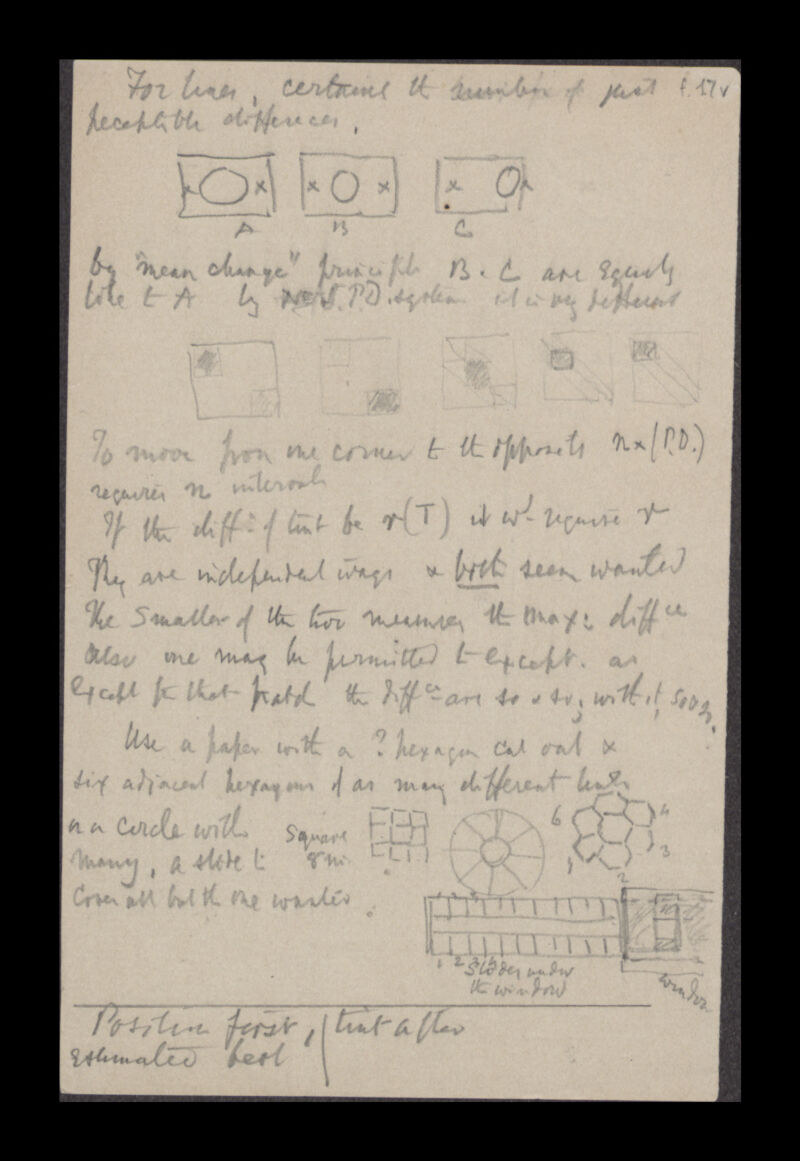 For lines, certains th number of just f. 17v
peceptible differences.
x x x x x
A B C
by "mean change" principle B. C are equally
like t A by P.D. system it is very different
To move from one corner t th opposite n x (P.D.)
requires n intervals
If the diffce of tint be r(T) it wd require r
They are independent ways & both seem wanted
The smaller of the two measures th max: diffce
also one may be permitted t except. as
except for that patch the diffces are so & so; with it, so & so.
Use a paper with a ? hexagon cut out &
six adjacent hexagons of as many different tints
or a circle with Square 6 4
many, a slide t 8 in 1 3
cover all but the one wanted. 2
1 2 3 4
Slides under window
the window
Position first, tint after
estimated best